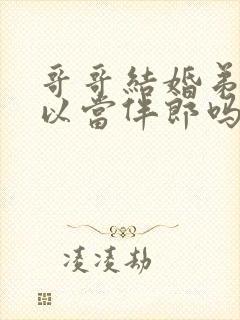 哥哥結婚弟
以當伴郎嗎
凌凌劫